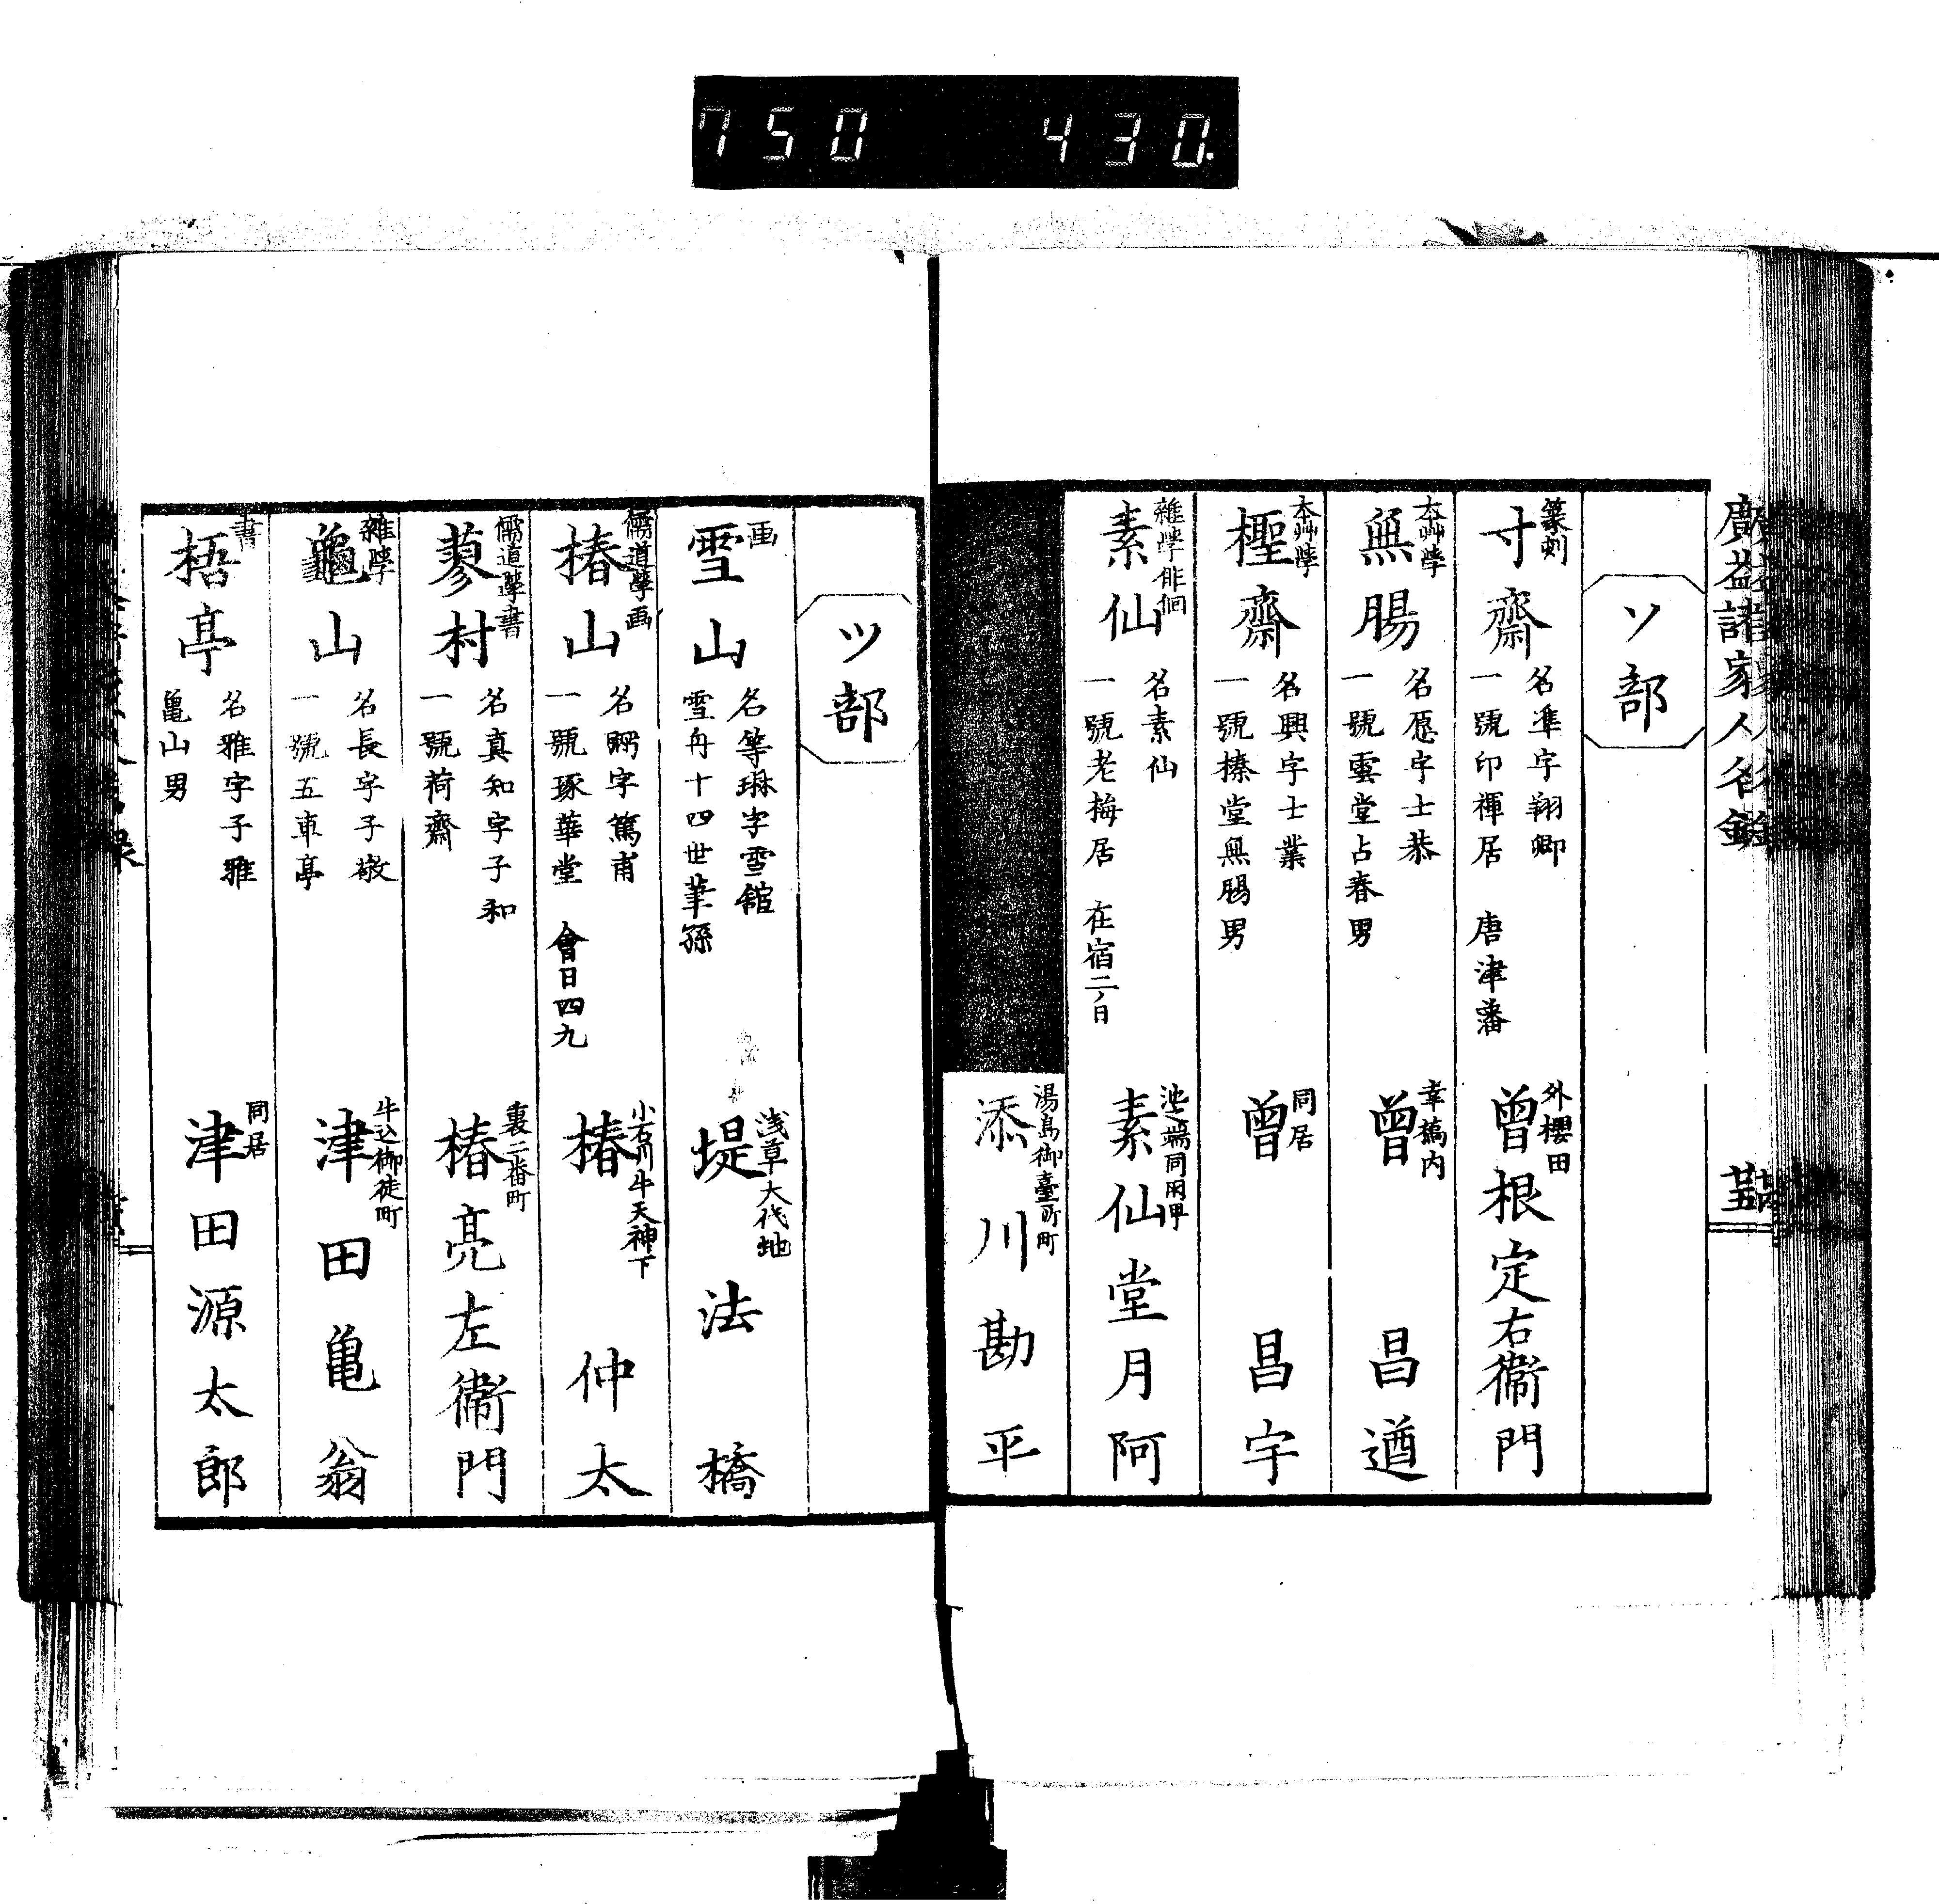 750 430.
廣益諸家人名録
ソ部
篆刻
寸齋
名準字翔卿
一號印禪居 唐津藩
外櫻田
曽根定右衞門
本艸学
無腸
名愿字士恭
一號雲堂占春男
幸橋内
曽 昌遒
本艸学
檉齋
名興字士業
一號榛堂無腸男
同居
曽 昌宇
雜学 俳佪
素仙
名素仙
一號老梅居 在宿二ノ日
池之端
素仙堂月阿
湯島御臺所町
添川勘平
ツ部
画
雪山
名等琳字雪館
雪舟十四世筆孫
浅草大代地
堤 法橋
儒道學画
椿山
名弼字篤甫
一號琢華堂 會日四九
小石川牛天神下
椿 仲太
儒道學書
蓼村
名真知字子和
一號荷齋
裏二番町
椿亮左衞門
雜学
龜山
名長字子敬
一號五車亭
牛込御徒町
津田亀翁
書
梧亭
名雅字子雅
亀山男
同居
津田源太郎